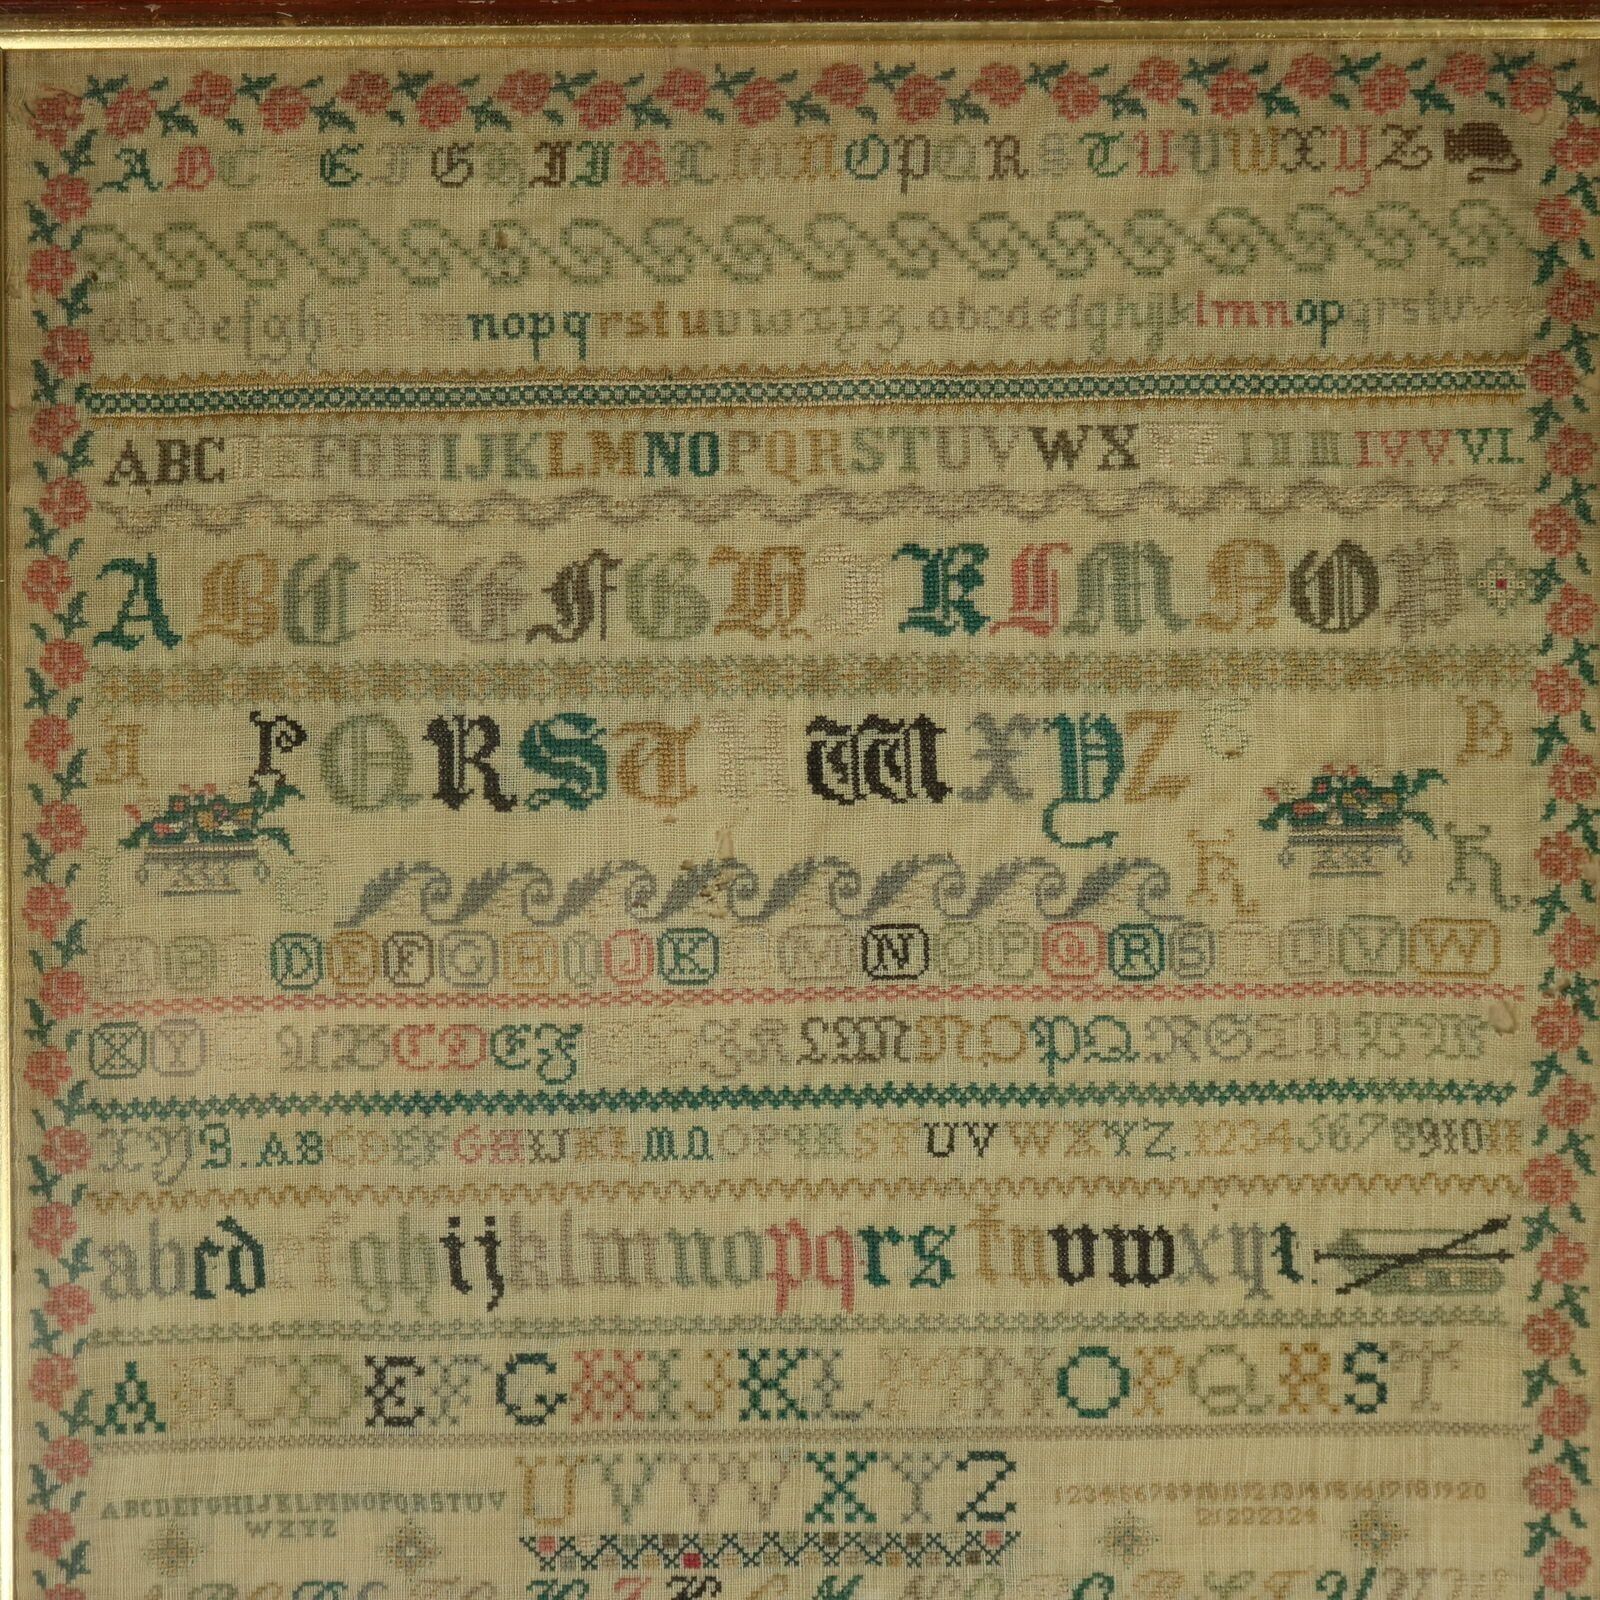 A B C D E F G H I J K L M N O P Q R S T U V W X Y Z
a b c d e f g h i j k l m n o p q r s t u v w x y z a b c d e f g h i j k l m n o p q r s t u v w
A B C D E F G H I J K L M N O P Q R S T U V W X Y Z I II III IV. V. VI.
A B C D E F G H I K L M N O P
A P Q R S T U W X Y Z T B
I G K K
A B C D E F G H I J K L M N O P Q R S T U V W
X Y Z A B C D E F G H I K L M N O P Q R S T U V W
X Y Z. A B C D E F G H I J K L M N O P Q R S T U V W X Y Z. 1 2 3 4 5 6 7 8 9 10 11
a b c d e f g h i j k l m n o p q r s t u v w x y z.
A B C D E F G H I J K L M N O P Q R S T
U V V V X Y Z
A B C D E F G H I J K L M N O P Q R S T U V
W X Y Z
1 2 3 4 5 6 7 8 9 10 11 12 13 14 15 16 17 18 19 20
21 22 23 24